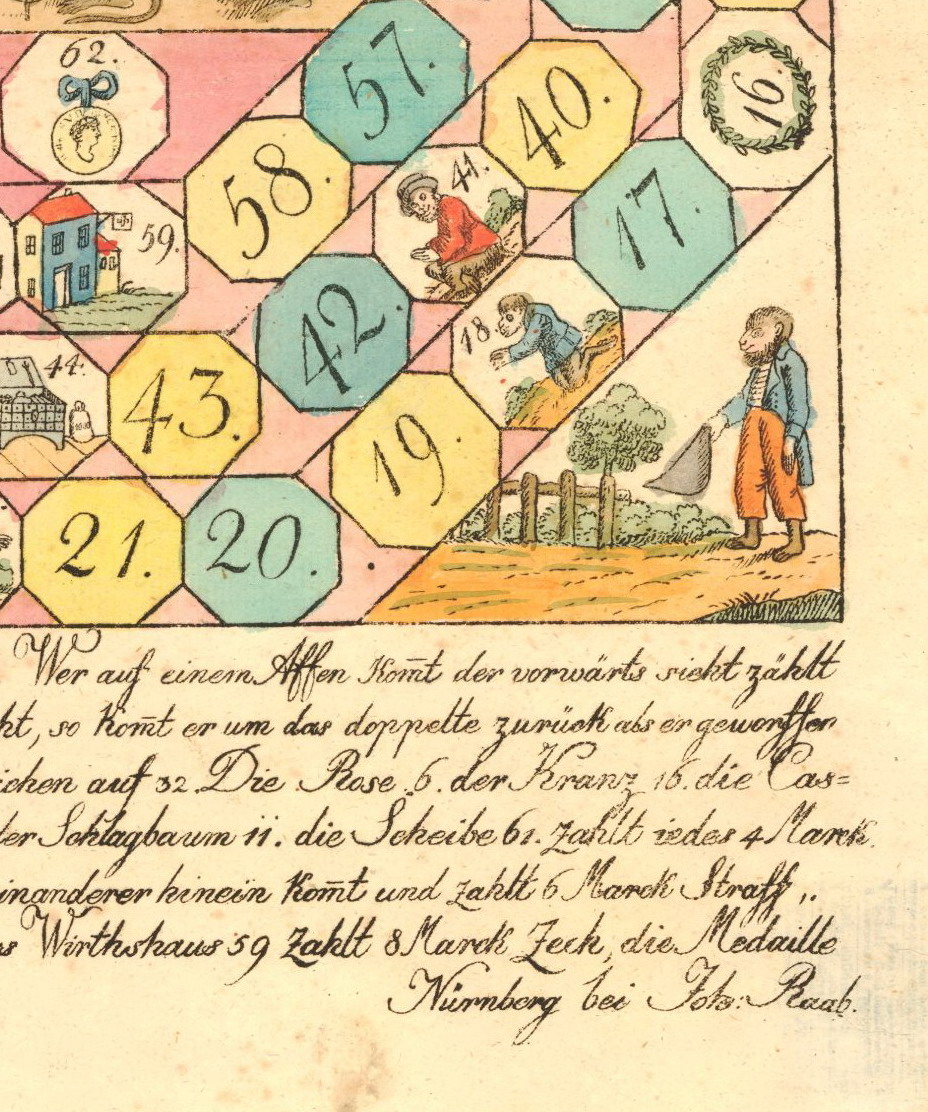 62.
57.
40.
16.
58.
41.
17.
59.
42.
18
44.
43.
19.
21.
20.
Wer auf einem Affen kom̅t der vorwärts sieht zählt
ht, so kom̅t er um das doppelte zurück als er geworffen
ichen auf 32. Die Rose 6. der Kranz 16. die Cas=
der Schlagbaum 11. die Scheibe 61. zahlt iedes 4 Marck.
inanderer hinein kom̅t und zahlt 6 Marck Straff,,
s Wirthshaus 59 zahlt 8 Marck Zech, die Medaille
Nürnberg bei Joh: Raab.